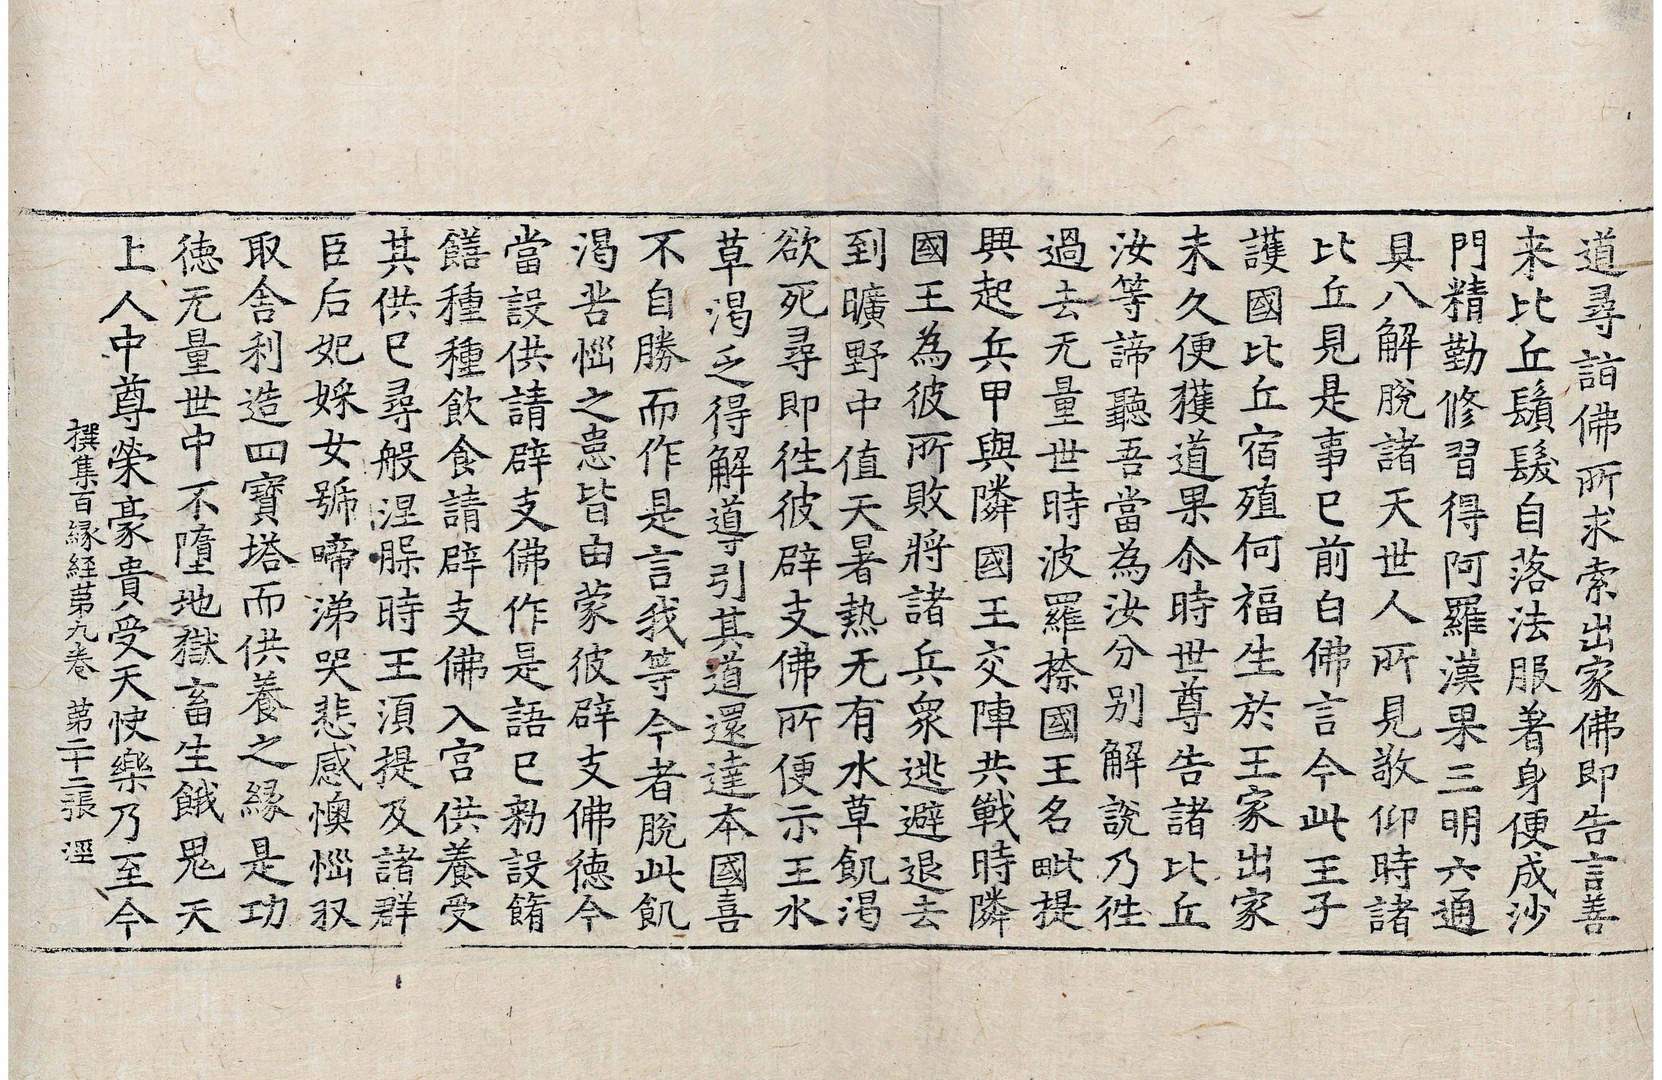 道尋詣佛所求索出家佛即告言善
来比丘鬚髮自落法服著身便成沙
門精勤修習得阿羅漢果三明六通
具八解脫諸天世人所見敬仰時諸
比丘見是事已前白佛言今此王子
護國比丘宿殖何福生於王家出家
未久便獲道果尒時世尊告諸比丘
汝等諦聽吾當為汝分别解說乃徃
過去无量世時波羅㮈國王名毗提
興起兵甲與隣國王交陣共戰時隣
國王為彼所敗將諸兵衆逃避退去
到曠野中值天暑熱无有水草飢渴
欲死尋即徃彼辟支佛所便示王水
草渴乏得解導引其道還達本國喜
不自勝而作是言我等今者脫此飢
渴苦惱之患皆由蒙彼辟支佛德今
當設供請辟支佛作是語已勑設餚
饍種種飲食請辟支佛入宫供養受
其供已尋般涅槃時王湏提及諸群
臣后妃婇女號啼涕哭悲感懊惱収
取舍利造四寶塔而供養之緣是功
德无量世中不墮地獄畜生餓鬼天
上人中尊榮豪貴受天快樂乃至今
撰集百縁經第九卷 第二十二張 涇